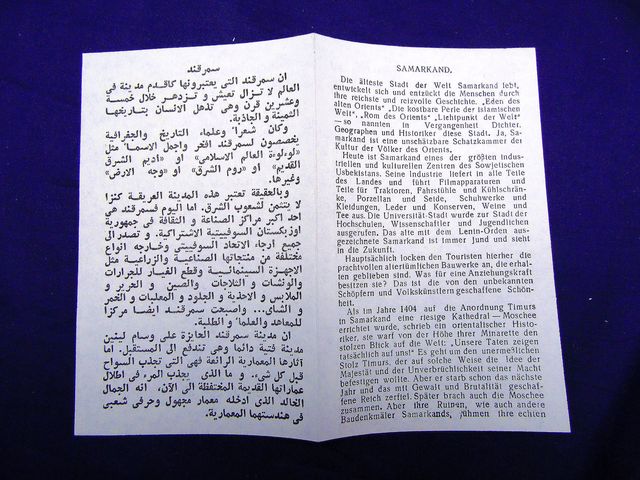 سمرقند
ان سمرقند التى يعتبرونها كاقدم مدينة فى
العالم لا تزال تعيش و تزدهر خلال خمسة
وعشرين قرن وهى تذهل الانسان بتاريخها
الثمينة و الجاذبة.
وكان شعرا٬ وعلما٬ التاريخ والجغرافية
يخصصون لسمرقند افخر واجمل الاسما٬ مثل
«لو٬لو٬ة العالم الاسلامى» او «اديم الشرق
القديم» او «روم الشرق» او «وجه الارض»
وغيرها.
وبالحقيقة تعتبر هذه المدينة العريقة كنزا
لا يتثمن لشعوب الشرق. اما اليوم فسمرقند هى
احد اكبر مراكز الصناعة و الثقافة فى جمهورية
اوزبكستان السوفييتية الاشتراكية. و تصدر الى
جميع ارجا٬ الاتحاد السوفييتى وخارجه انواع
مختلفة من منتجاتها الصناعية والزراعية مثل
الاجهزة السينمائية و قطع الغيار للجرارات
والونشات و الثلاجات والصين و الحرير و
الملابس و الاحذية و الجلود و المعلبات و الخمر
و الشاى... واصبحت سمرقند ايضا مركزا
للمعاهد والعلما٬ و الطلبة.
ان مدينة سمرقند الحايزة على وسام لينين
مدينة فتية دائما وهى تندفق الى المستقبل. اما
آثارها المعمارية الرائعة فهى التى تجذب السواح
قبل كل شى٬. و ما الذى يجذب المر٬ فى اطلال
عماراتها القديمة المحتفظة الى الآن، انه الجمال
الخالد الذى ادخله معمار مجهول وحرفى شعبى
فى هندستهما المعمارية.
SAMARKAND.
Die älteste Stadt der Welt Samarkand lebt,
entwickelt sich und entzückt die Menschen durch
ihre reichste und reizvolle Geschichte. „Eden des
alten Orients" „Die kostbare Perle der islamischen
Welt". „Rom des Orients" „Lichtpunkt der Welt"
—so nannten in Vergangenheit Dichter,
Geographen und Historiker diese Stadt. Ja, Sa-
markand ist eine unschätzbare Schatzkammer der
Kultur der Völker des Orients.
Heute ist Samarkand eines der größten indus-
triellen und kulturellen Zentren des Sowjetischen
Usbekistans. Seine Industrie liefert in alle Teile
des Landes und führt Filmapparaturen und
Teile für Traktoren, Fahrstühle und Kühlschrän-
ke, Porzellan und Seide, Schuhwerke und
Kleidungen, Leder und Konserven, Weine und
Tee aus. Die Universität-Stadt wurde zur Stadt der
Hochschulen, Wissenschaftler und Jugendlichen
ausgerufen. Das alte mit dem Lenin-Orden aus-
gezeichnete Samarkand ist immer jund und sieht
in die Zukunft.
Hauptsächlich locken den Touristen hierher die
prachtvollen altertümlichen Bauwerke an, die erhal-
ten geblieben sind. Was für eine Anziehungskraft
besitzen sie? Das ist die von den unbekannten
Schöpfern und Volkskünstlern geschaffene Schön-
heit.
Als im Jahre 1404 auf die Anordnung Timurs
in Samarkand eine riesige Kathedral—Moschee
errichtet wurde, schrieb ein orientalischer Histo-
riker, sie warf von der Höhe ihrer Minarette den
stolzen Blick auf die Welt: „Unsere Taten zeigen
tatsächlich auf uns!" Es geht um den unermeßlichen
Stolz Timurs, der auf solche Weise die Idee der
Majestät und der Unverbrüchlichkeit seiner Macht
befestigen wollte. Aber er starb schon das nächste
Jahr und das mit Gewalt und Brutalität geschaf-
fene Reich zerfiel. Später brach auch die Moschee
zusammen. Aber ihre Ruinen, wie auch andere
Baudenkmäler Samarkands, rühmen ihre echten